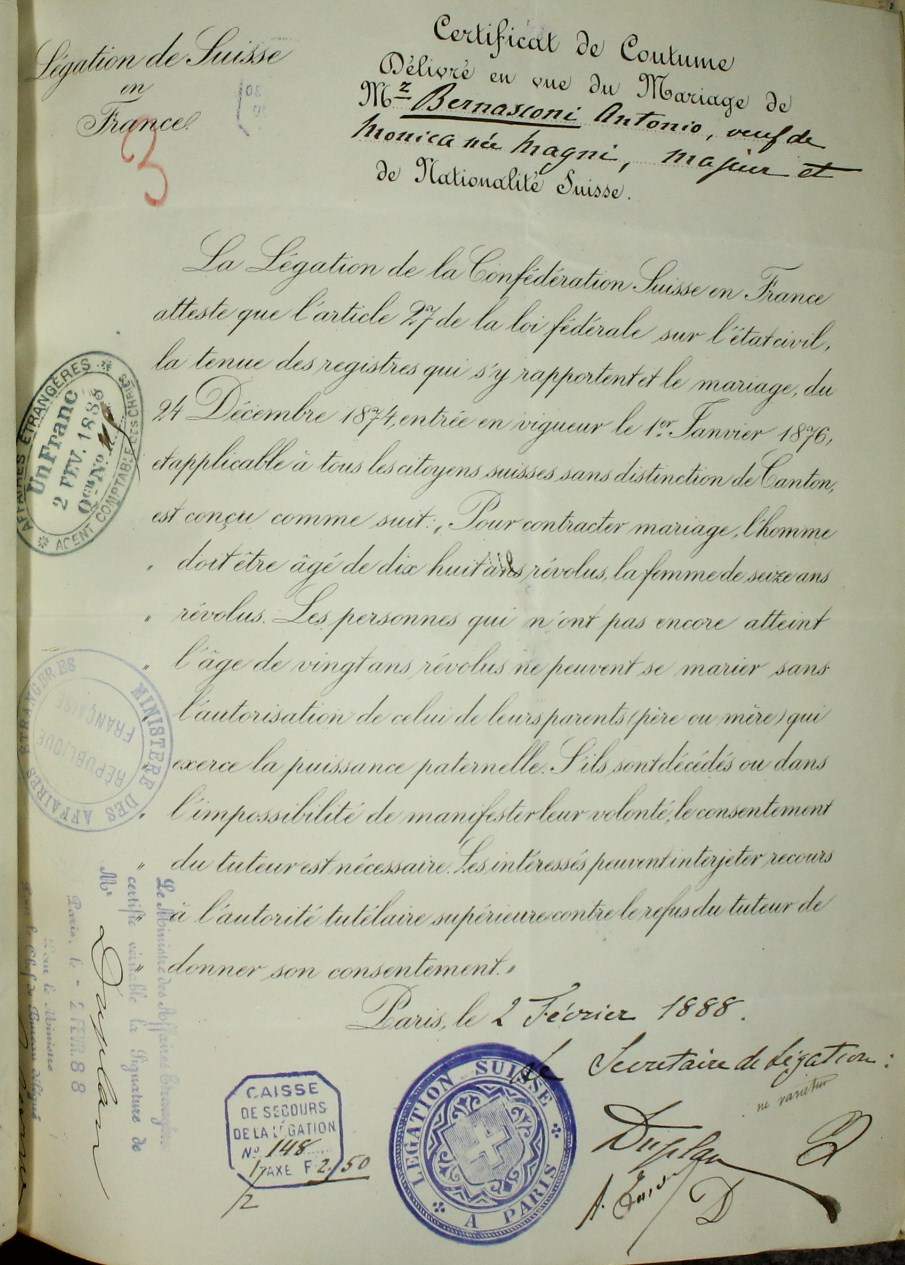 Légation de Suisse
en
France.
3
Certificat de Coutume
Délivré en vue du Mariage de
Mr Bernasconi Antonio, veuf de
Monica née Magni, majeur et
de Nationalité Suisse.
La Légation de la Confédération Suisse en France
atteste que l'article 27 de la loi fédérale sur l'état civil,
la tenue des registres qui s'y rapportent et le mariage, du
24 Décembre 1874, entrée en vigueur le 1er Janvier 1876,
et applicable à tous les citoyens suisses sans distinction de Canton,
est conçu comme suit: „Pour contracter mariage, l'homme
„ doit être âgé de dix huit ans révolus, la femme de seize ans
„ révolus. Les personnes qui n'ont pas encore atteint
„ l'âge de vingt ans révolus ne peuvent se marier sans
„ l'autorisation de celui de leurs parents (père ou mère) qui
„ exerce la puissance paternelle. S'ils sont décédés ou dans
„ l'impossibilité de manifester leur volonté, le consentement
„ du tuteur est nécessaire. Les intéressés peuvent interjeter recours
„ à l'autorité tutélaire supérieure contre le refus du tuteur de
„ donner son consentement."
Paris, le 2 Février 1888.
Le Secretaire de Légation:
ne varietur
Duplan
AFFAIRES ETRANGÈRES
Un Franc
2 FEV. 1888
Qce No
AGENT COMPTABLE DES CHRIES
MINISTERE DES AFFAIRES ETRANGERES
RÉPUBLIQUE
FRANÇAISE
Le Ministre des Affaires Etrangères
certifie véritable la Signature de
Mr Duplan
Paris, le - 2 FEVR 88
Pour le Ministre
CAISSE
DE SECOURS
DE LA LÉGATION
No 148
TAXE F. 2,50
LEGATION SUISSE
A PARIS